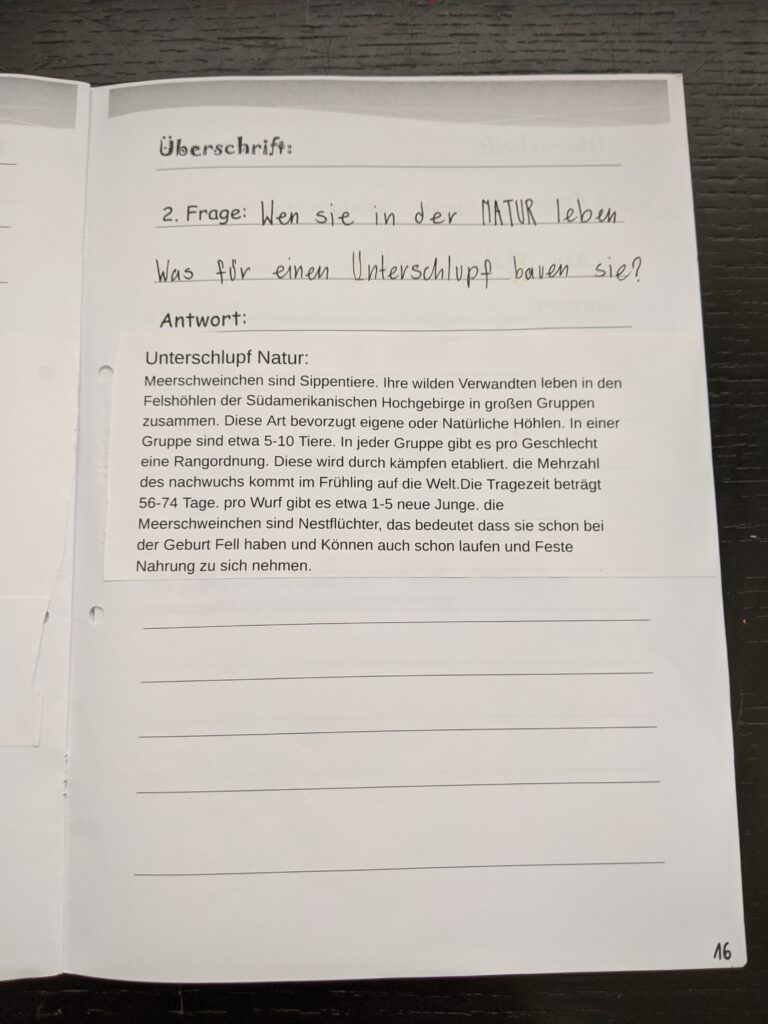 Überschrift:
2. Frage: Wen sie in der NATUR leben
Was für einen Unterschlupf bauen sie?
Antwort:
Unterschlupf Natur:
Meerschweinchen sind Sippentiere. Ihre wilden Verwandten leben in den
Felshöhlen der Südamerikanischen Hochgebirge in großen Gruppen
zusammen. Diese Art bevorzugt eigene oder Natürliche Höhlen. In einer
Gruppe sind etwa 5-10 Tiere. In jeder Gruppe gibt es pro Geschlecht
eine Rangordnung. Diese wird durch kämpfen etabliert. die Mehrzahl
des nachwuchs kommt im Frühling auf die Welt.Die Tragezeit beträgt
56-74 Tage. pro Wurf gibt es etwa 1-5 neue Junge. die
Meerschweinchen sind Nestflüchter, das bedeutet dass sie schon bei
der Geburt Fell haben und Können auch schon laufen und Feste
Nahrung zu sich nehmen.
16